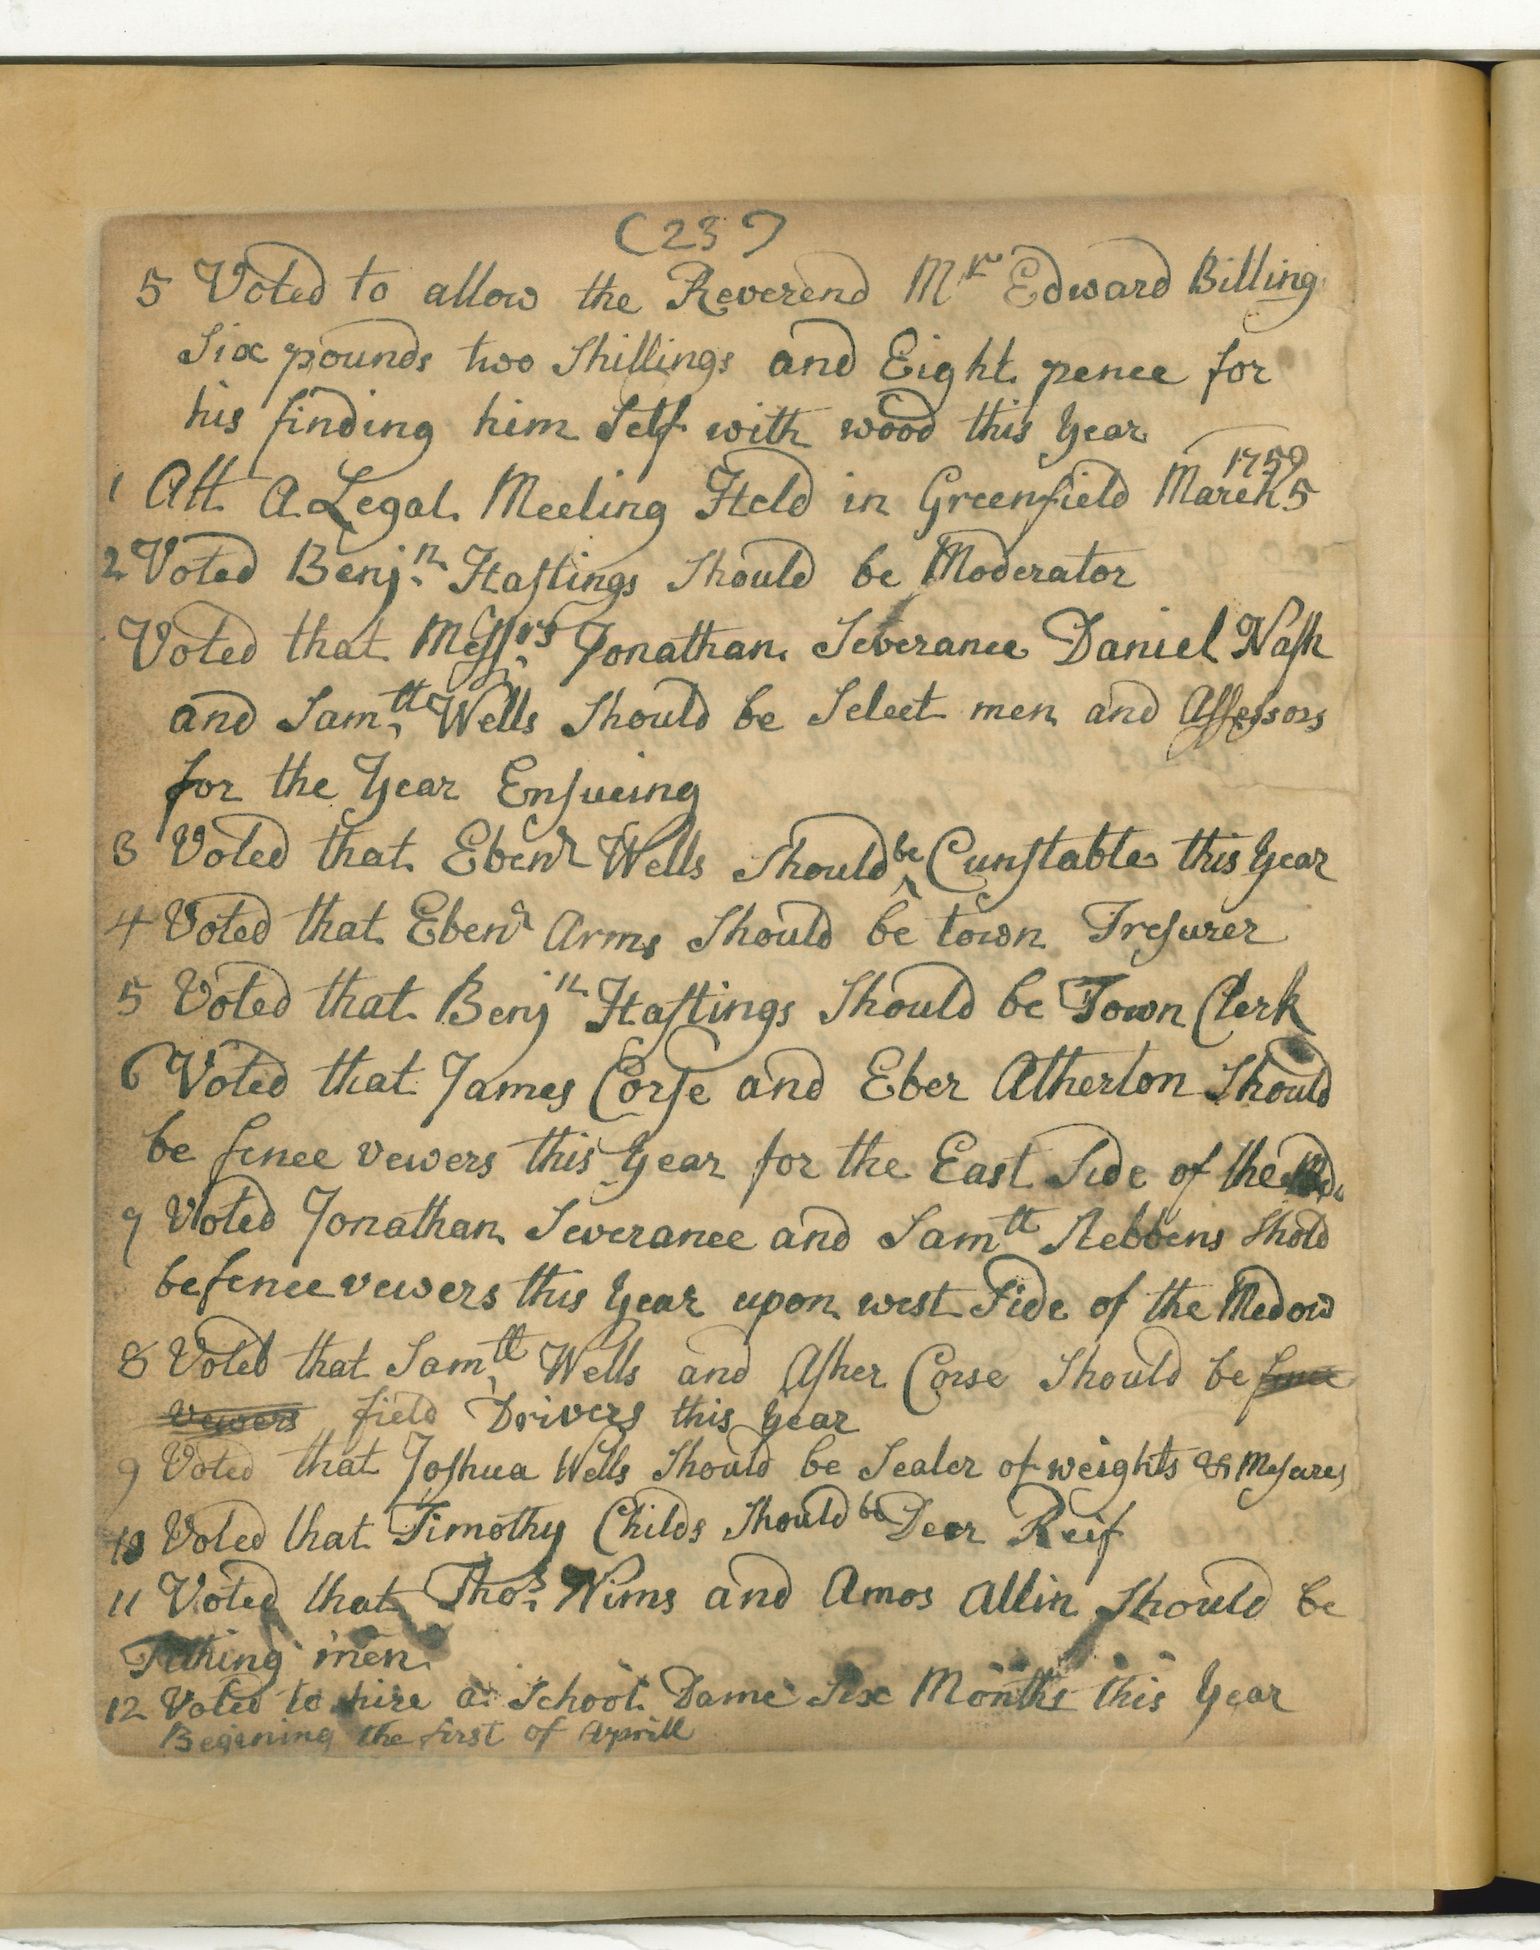 (23)
5 Voted to allow the Reverend Mr Edward Billing
Six pounds two Shillings and Eight pence for
his finding him Self with wood this Year
1 Att A Legal Meeting Held in Greenfield March 5 1759
2 Voted Benjn Hastings Should be Moderator
Voted that Messrs Jonathan Severance Daniel Nash
and Samll Wells Should be Select men and Assessors
for the Year Ensueing
3 Voted that Ebenr Wells Should be Cunstable this Year
4 Voted that Ebenr Arms Should be town Tresurer
5 Voted that Benjn Hastings Should be Town Clerk
6 Voted that James Corse and Eber Atherton Should
be fence vewers this Year for the East Side of the
7 Voted Jonathan Severance and Samll Stebbens Shold
be fence vewers this Year upon west Side of the Medow
8 Voted that Samll Wells and Asher Corse Should be fence
vewers field Drivers this Year
9 Voted that Joshua Wells Should be Sealer of weights & Mesures
10 Voted that Timothy Childs Should be Deer Reif
11 Voted that Thos Nims and Amos Allin Should be
men
12 Voted to hire a School Dame Six Months this Year
Begining the first of Aprill